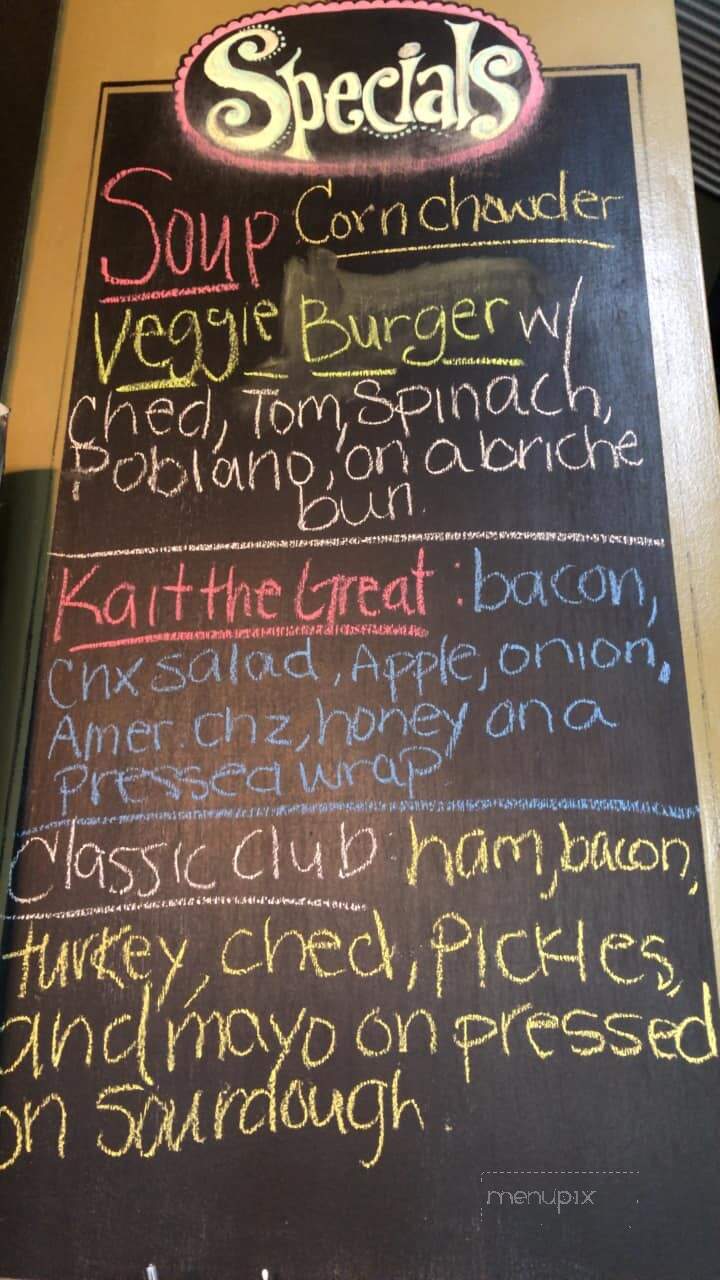 Specials
Soup Corn chowder
Veggie Burger w/
Ched, Tom, Spinach,
Poblano, on a briche
bun.
Kait the Great: bacon,
Chx salad, Apple, onion,
Amer. chz, honey on a
pressed wrap
Classic Club ham, bacon,
turkey, ched, Pickles,
and mayo on pressed
on Sourdough.
menupix